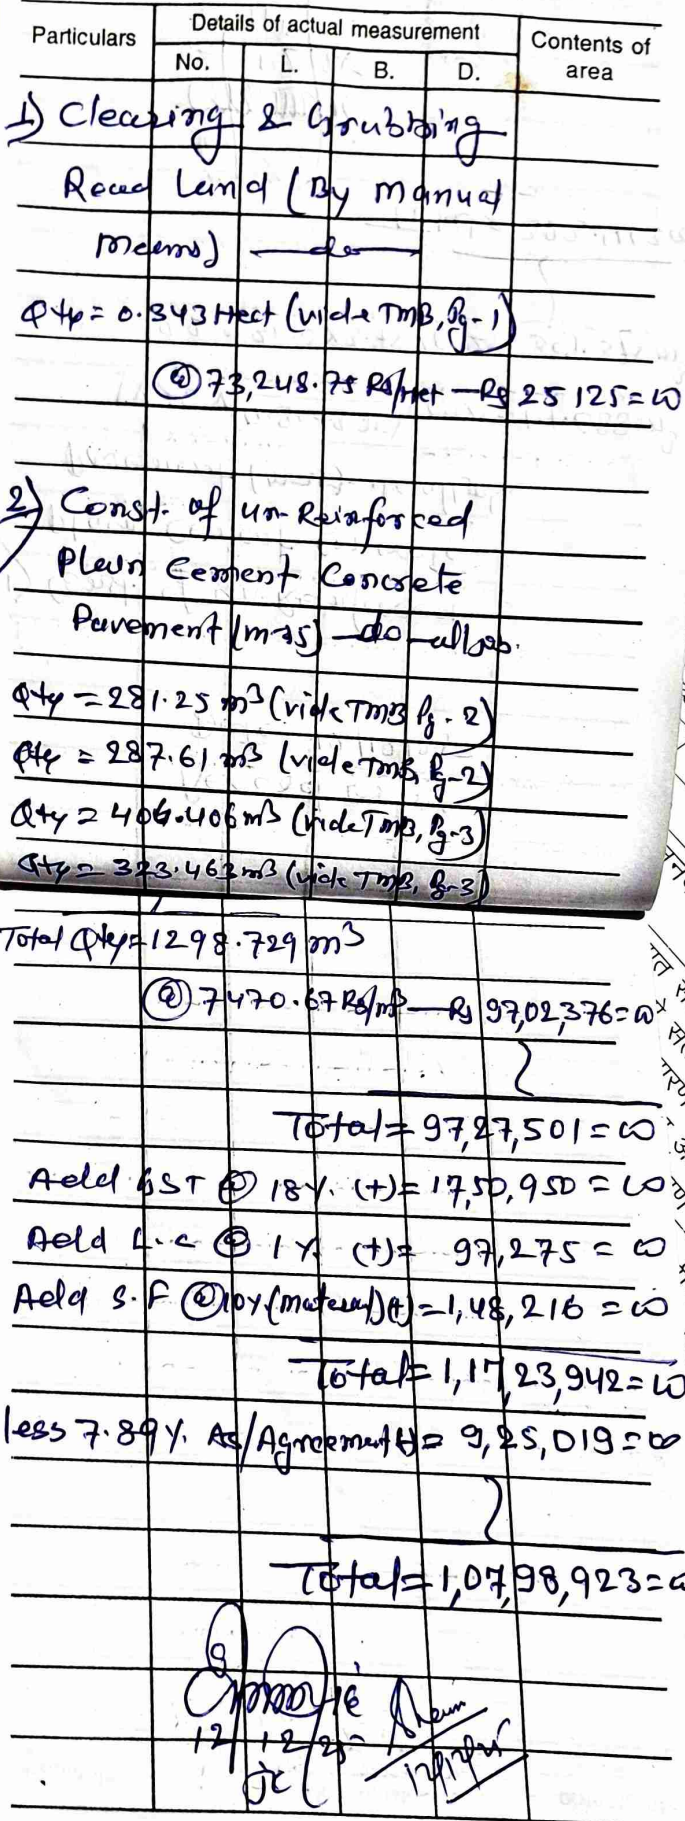 Particulars
Details of actual measurement
Contents of area
No. L. B. D.
1) Clearing & Grubbing
Road Land (By manual
means) — do —
Qty = 0.343 Hect (vide TMB, Pg-1)
@ 73,248.75 Rs/Het — Rs 25125=00
2) Const. of un-Reinforced
Plain Cement Concrete
Pavement (m25) — do — all job.
Qty = 281.25 m³ (vide TMB Pg-2)
Qty = 287.61 m³ (vide TMB, Pg-2)
Qty = 406.406 m³ (vide TMB, Pg-3)
Qty = 323.463 m³ (vide TMB, Pg-3)
Total Qty = 1298.729 m³
@ 7470.67 Rs/m³ — Rs 97,02,376=00
Total = 97,27,501=00
Add GST @ 18%. (+) = 17,50,950=00
Add L.C @ 1%. (+) = 97,275=00
Add S.F @ 10% (material) (+) = 1,48,216=00
Total = 1,17,23,942=00
less 7.89%. As/Agreement (-) = 9,25,019=00
Total = 1,07,98,923=00
12/12/25
JE
12/12/25